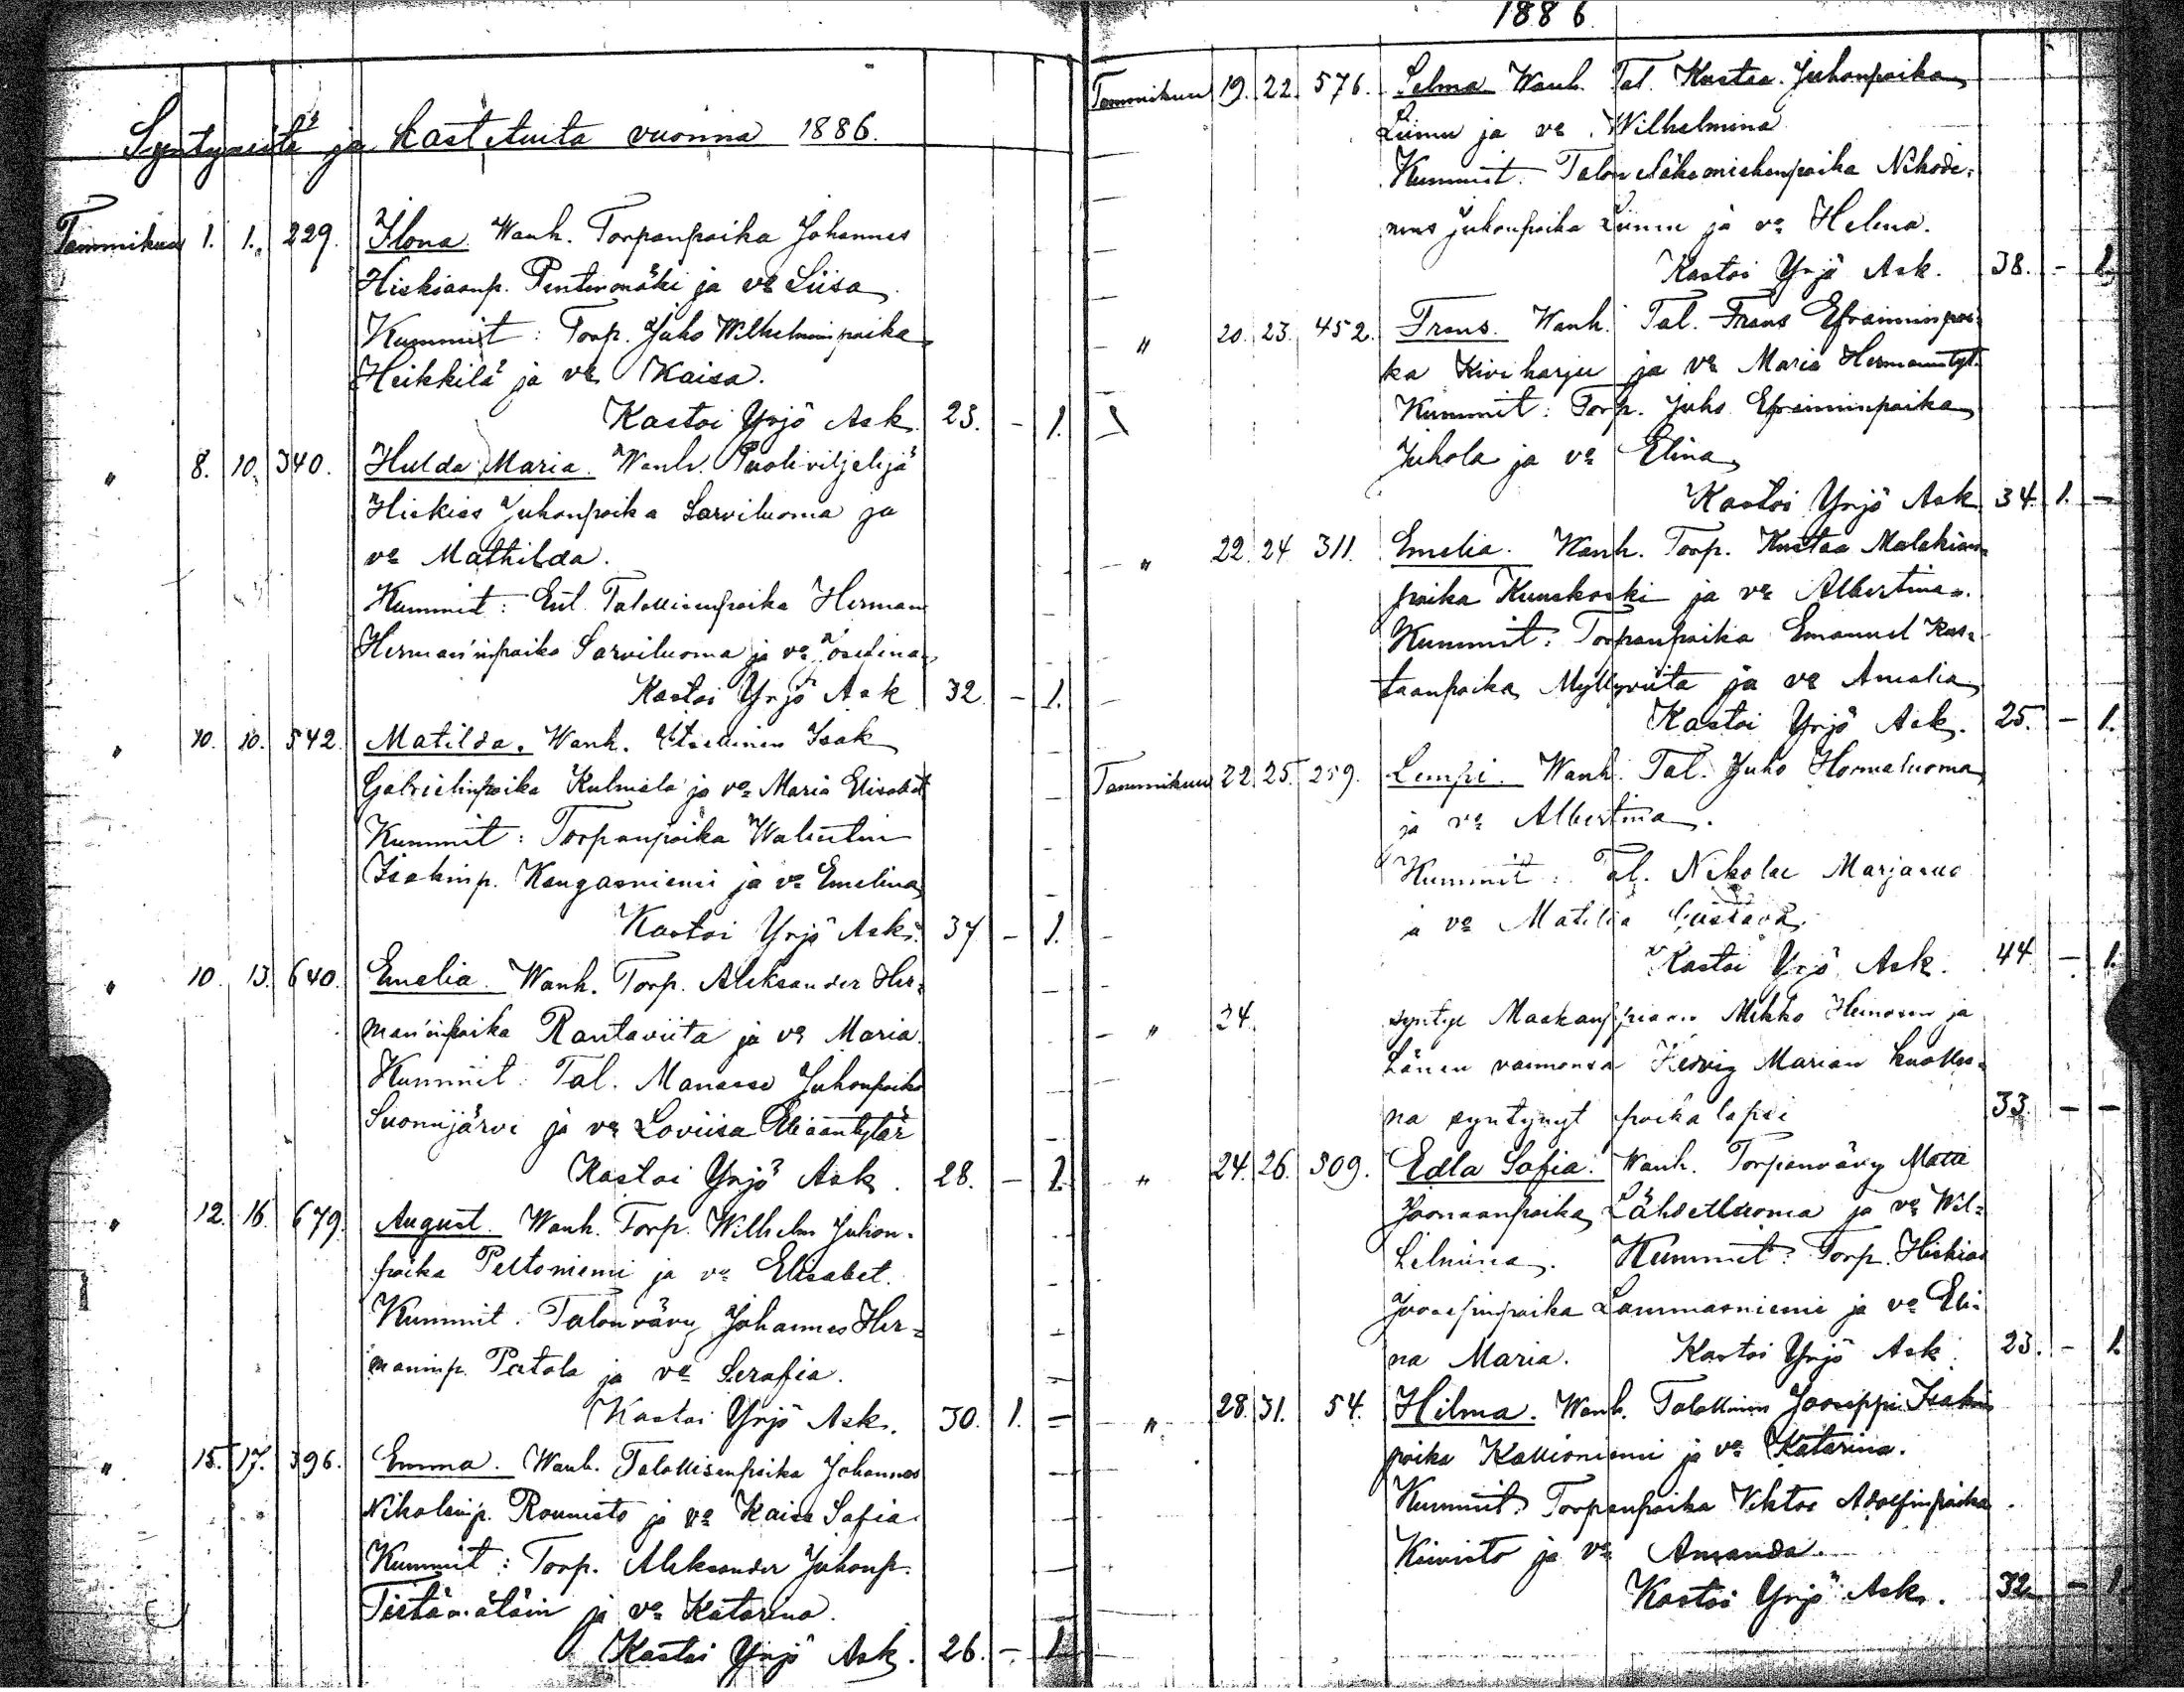 Syntyneitä ja kastetuita vuonna 1886.
Tammikuu 1. 1. 229. Ilona. Wanh. Torpanpoika Johannes
Hiskiaanp. Penttinmäki ja vo Liisa
Kummit: Torp. Juho Wilhelminpoika
Heikkilä ja vo Kaisa.
Kastoi Yrjö Ask. 23. - 1.
" 8. 10. 340. Hulda Maria. Wanh. Puoliviljelijä
Hiskias Juhonpoika Sarviluoma ja
vo Mathilda.
Kummit: Ent. Talollisenpoika Herman
Herman'inpoika Sarviluoma ja vo
Kastoi Yrjö Ask 32 - 1.
" 10. 10. 542. Matilda. Wanh. Itsellinen Isak
Gabrielinpoika Kulmala ja vo Maria Elisabet
Kummit: Torpanpoika Walentin
Isakinp. Kangasniemi ja vo Emelina
Kastoi Yrjö Ask. 37 - 1.
" 10. 13. 640. Emelia. Wanh. Torp. Aleksander Her=
man'inpoika Rantaviita ja vo Maria.
Kummit: Tal. Manasse Juhonpoika
Suonijärvi ja vo Loviisa Eliaantytär
Kastoi Yrjö Ask. 28. - 1.
" 12. 16. 679. August. Wanh. Torp. Wilhelm Juhon=
poika Peltoniemi ja vo Elisabet.
Kummit: Talonvävy Johannes Her=
maninp. Patola ja vo Serafia.
Kastoi Yrjö Ask. 30. 1. -
" 15. 17. 396. Emma. Wanh. Talollisenpoika Johannes
Nikolainp. Rounisto ja vo Kaisa Sofia
Kummit: Torp. Aleksander Juhonp.
ja vo Katarina.
Kastoi Yrjö Ask. 26. - 1.
1886
Tammikuu 19. 22. 576. Selma. Wanh. Tal. Kustaa Juhonpoika
Liimu ja vo Wilhelmina
Kummit: Talon Nikode=
mus Juhonpoika Liimu ja vo Helena.
Kastoi Yrjö Ask. 38. - 1.
" 20. 23. 452. Frans. Wanh. Tal. Frans Efraiminpoi=
ka Kiviharju ja vo Maria Hermanintyt.
Kummit: Torp. Juho Efraiminpoika
Juhola ja vo Elina
Kastoi Yrjö Ask 34. 1. -
" 22. 24. 311. Emelia. Wanh. Torp. Kustaa Malakian=
poika Kuuskoski ja vo Albertina.
Kummit: Torpanpoika Emanuel Kus=
taanpoika Myllyviita ja vo Amalia
Kastoi Yrjö Ask. 25. - 1.
Tammikuu 22. 25. 259. Lempi. Wanh. Tal. Juho Hormaluoma
ja vo Albertina.
Kummit: Tal. Nikolai
ja vo Matilda Gustava.
Kastoi Yrjö Ask. 44 - 1.
" 24. syntyi Maakauppiaan Mikko Heinosen ja
hänen vaimonsa Hedvig Marian kuollee=
na syntynyt poikalapsi 33. - -
" 24. 26. 309. Edla Sofia. Wanh. Torpanvävy Matti
Joonaanpoika Lähdetluoma ja vo Wil=
helmina. Kummit: Torp. Hiskias
Joosefinpoika Lammasniemi ja vo Eli=
na Maria. Kastoi Yrjö Ask. 23. - 1.
" 28. 31. 54. Hilma. Wanh. Talollinen Jooseppi Isakin
poika Kallioniemi ja vo Katarina.
Kummit: Torpanpoika Viktor Adolfinpoika
Kivisto ja vo Amanda.
Kastoi Yrjö Ask. 32. - 1.